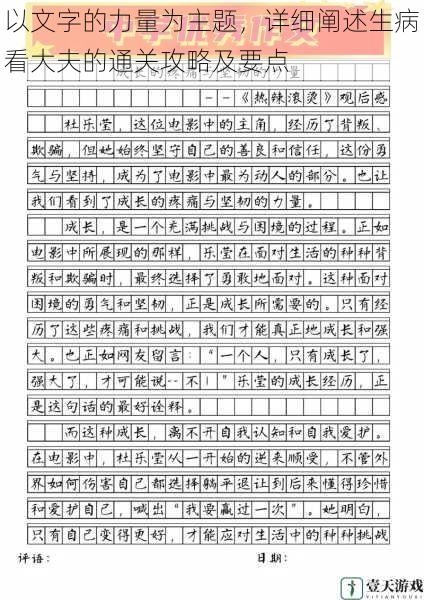 以文字的力量为主题，详细阐述生病
看大夫的通关攻略及要点
成长的疼痛与坚韧的力量
--《热辣滚烫》观后感
杜乐莹，这位电影中的主角，经历了背叛、
欺骗，但她始终坚守自己的善良和信任，这份勇
气与坚持，成为了电影中最为动人的部分。也让
我们看到了成长的疼痛与坚韧的力量。
成长，是一个充满挑战与困境的过程。正如
电影中所展现的那样，乐莹在面对生活的种种背
叛和欺骗时，最终选择了勇敢地面对。这种面对
困境的勇气和坚韧，正是成长所需要的。只有经
历了这些疼痛和挑战，我们才能真正地成长和强
大。也正如网友留言：“一个人，只有成长了，
强大了，才可能说--不！”乐莹的成长经历，正
是这句话的最好诠释。
而这种成长，离不开自我认知和自我爱护。
在电影中，杜乐莹从一开始的逆来顺受，不管外
界如何伤害自己都选择躺平退让到后来懂得珍惜
和爱护自己，喊出“我要赢过一次”。她明白，
只有自己变得更好，才能应对生活中的种种挑战
评语：
日期：
壹天游戏
YITIANYOUXI